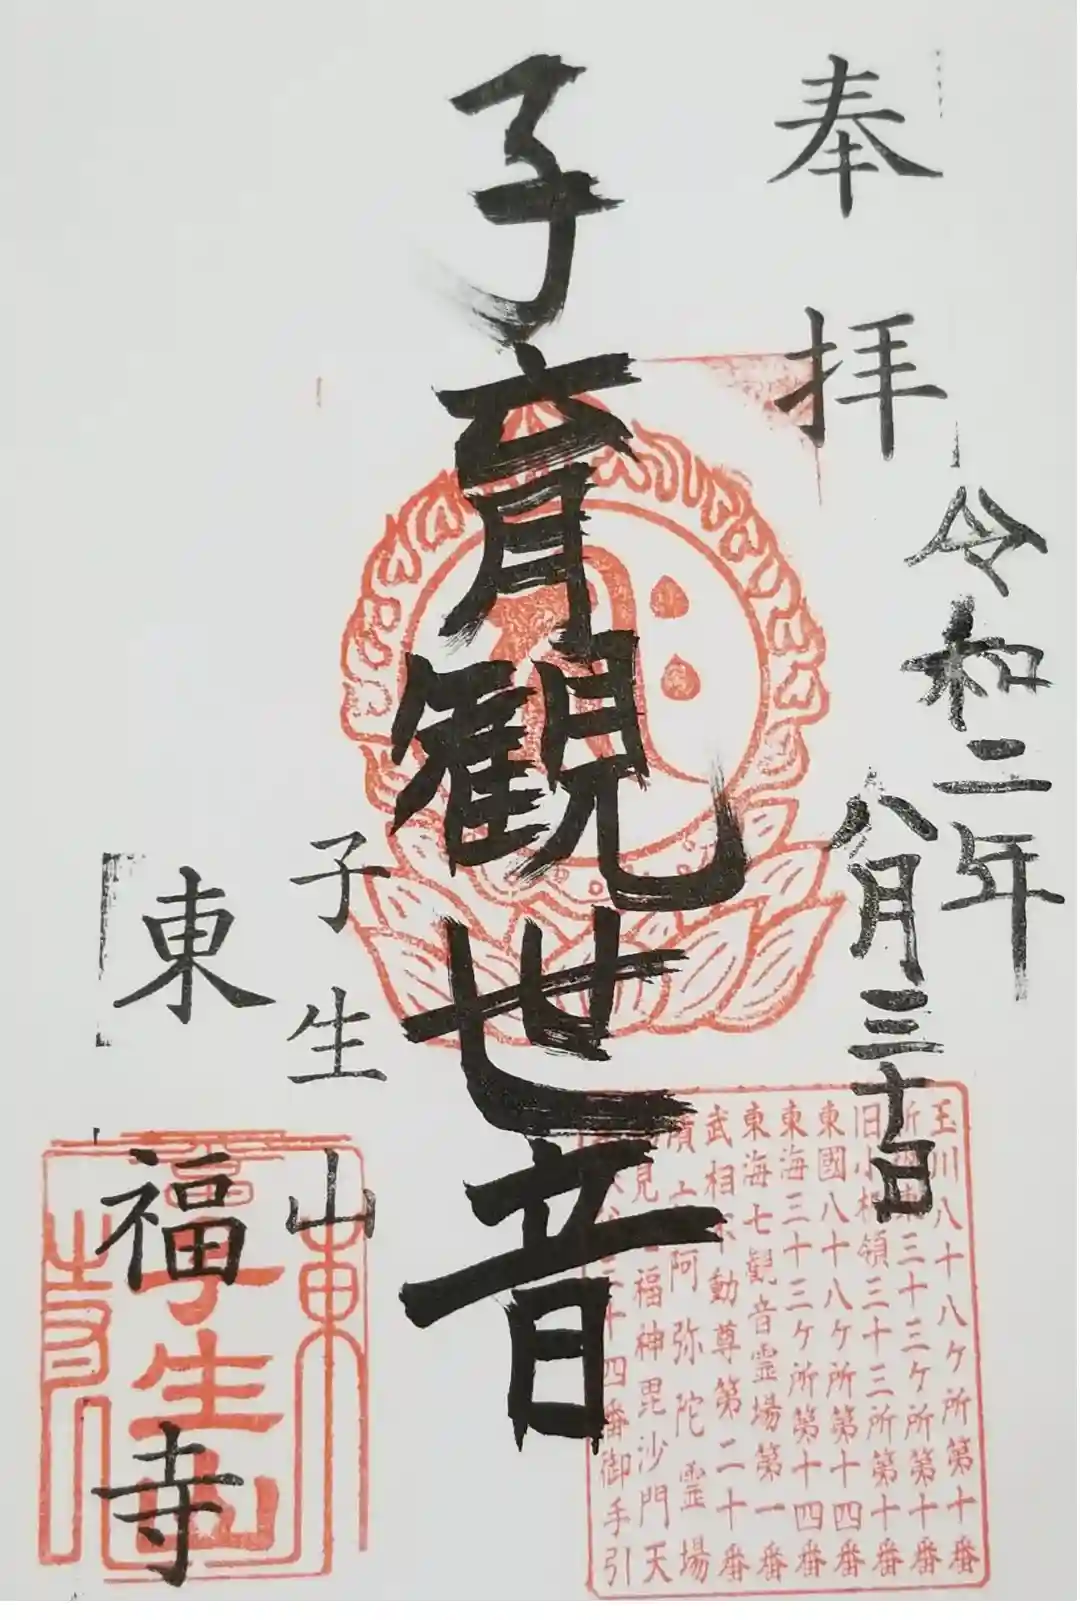 奉拝
令和二年
八月三十日
子育観世音
子生山
東福寺
玉川八十八ケ所第十番
三十三ケ所第十番
旧小机領三十三所第十番
東國八十八ケ所第十四番
東海三十三ケ所第十四番
東海七観音霊場第一番
武相不動尊第二十番
阿弥陀霊場
福神毘沙門天
十四番御手引
子生山
東
寺